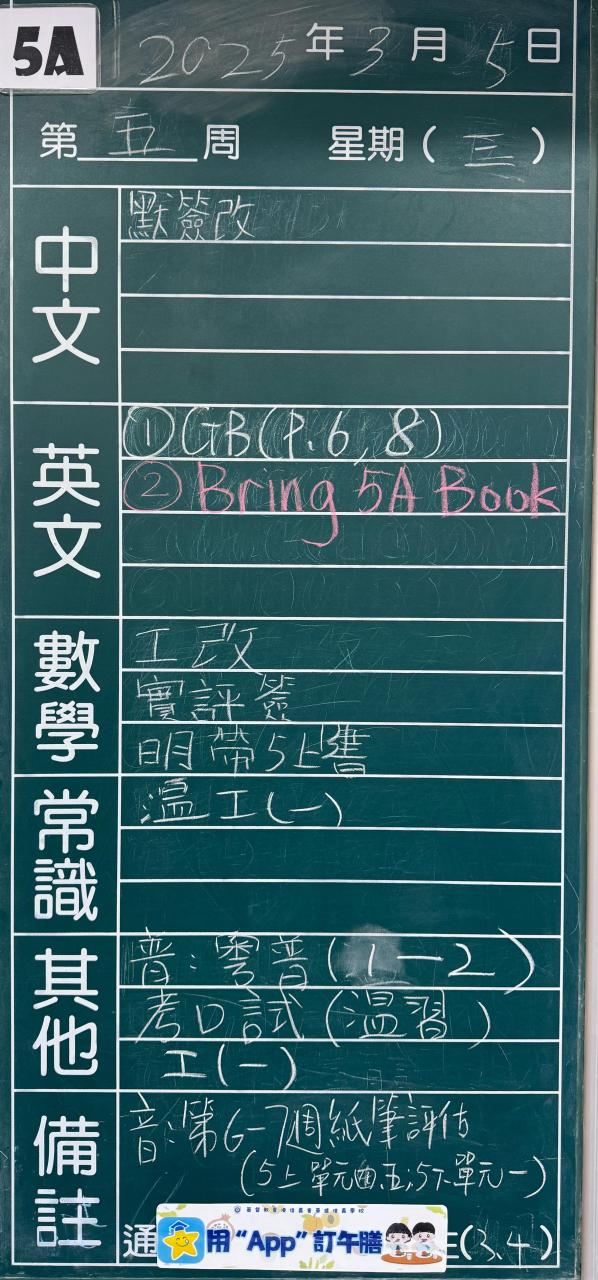 5A
2025年3月5日
第五周 星期(三)
中文
默簽改
英文
①GB(P.6,8)
②Bring 5A Book
數學
工改
實評簽
明帶5上書
常識
溫工(一)
其他
普:粵普(1-2)
考口試(溫習)
工(一)
備註
音:第6-7週紙筆評估
(5上單元四、五;5下單元一)
通
(3.4)
用“App”訂午膳